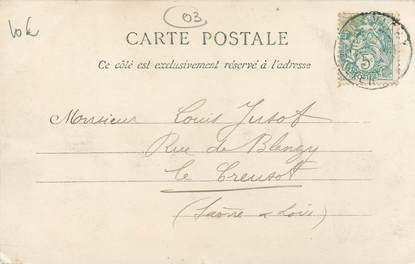 10€
03
CARTE POSTALE
Ce côté est exclusivement réservé à l'adresse
5
Monsieur Louis
Rue de Blanzy
le Creusot
(Saône & Loire)